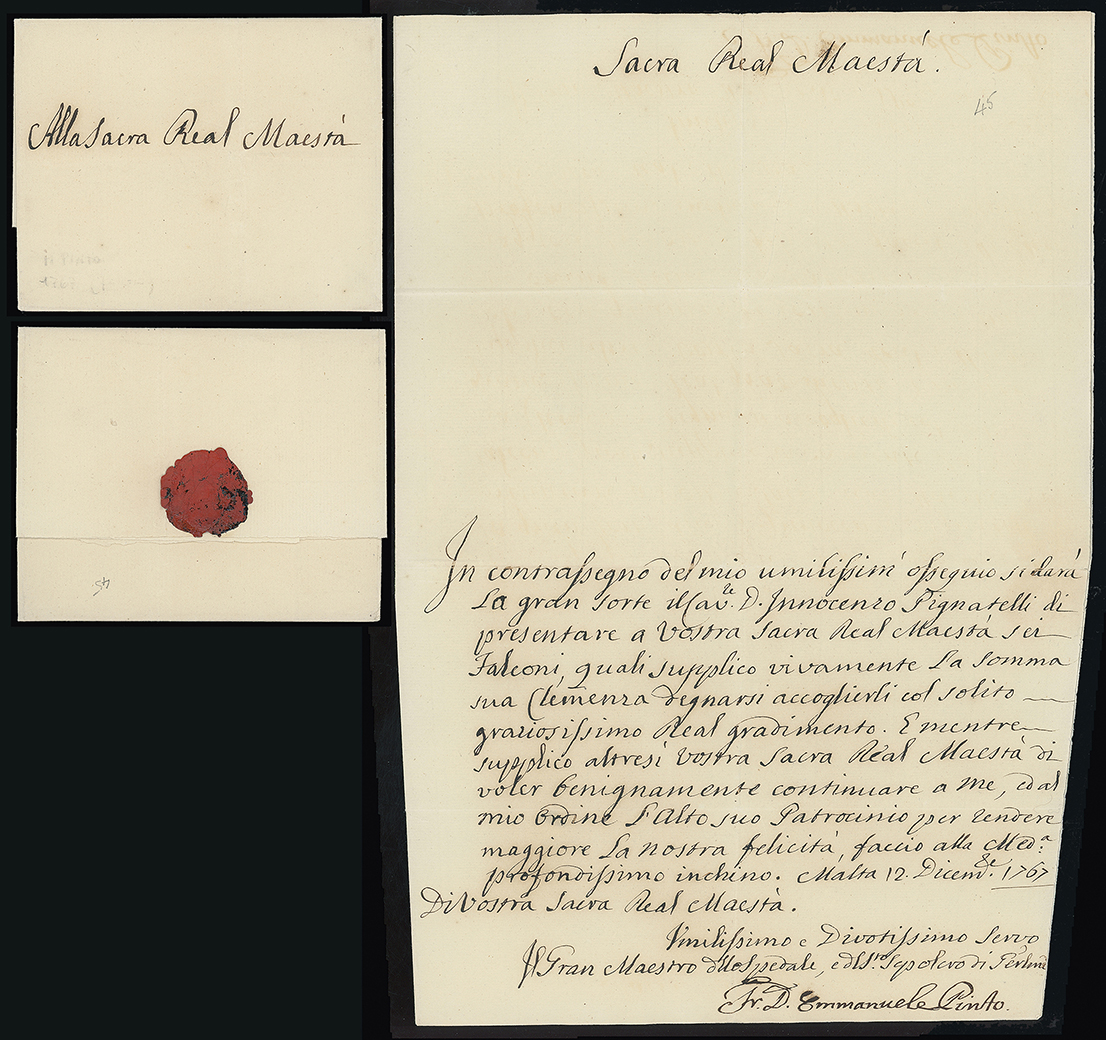 Alla Sacra Real Maestà
45
Sacra Real Maestà.
45
In contrassegno del mio umilissim' ossequio si darà
La gran sorte il Cav.re D. Innocenzo Pignatelli di
presentare a Vostra Sacra Real Maestà sei
Falconi, quali supplico vivamente La somma
sua Clemenza degnarsi accoglierli col solito
graziosissimo Real gradimento. E mentre
supplico altresì Vostra Sacra Real Maestà di
voler benignamente continuare a me, ed al
mio Ordine l'Alto suo Patrocinio per rendere
maggiore La nostra felicità, faccio alla Med.a
profondissimo inchino. Malta 12. Dicem.e 1767
Di Vostra Sacra Real Maestà.
Umilissimo e Divotissimo Servo
Il Gran Maestro dell'Ospedale, e del S.to Sepolcro di
Fr. D. Emmanuele Pinto.